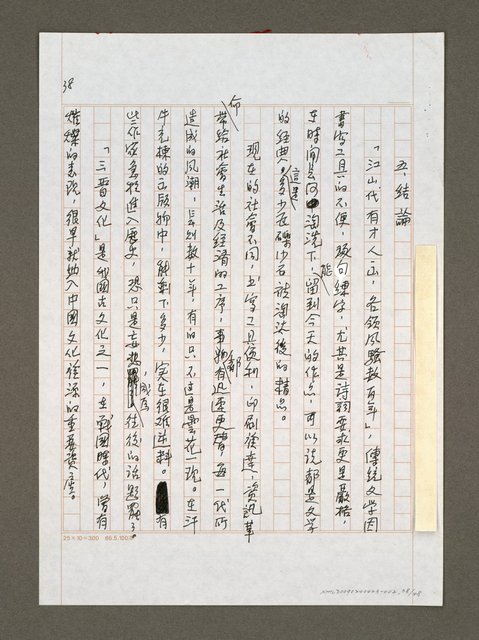 五、結論
「江山代有才人出,各領風騷數百年」,傳統文學因
書寫工具的不便,琢句練字,尤其是詩詞要求更是嚴格,
在時間長河淘洗下,能留到今天的作品,可以說都是文學
的經典。這是多少在礫沙石被淘汰後的精品。
現在的社會不同,書寫工具便利,印刷發達,資訊革
命帶給社會生活及經濟的工序,事物都有迅速更替,每一代所
造成的風潮,長則數十年,有的只不過是曇花一現。在汗
牛充棟的出版物中,能剩下多少,實在很難逆料。有
些作家急於進入歷史,恐只是妄想,成為往後的話題罷了
「三晉文化」是我國古文化之一,在戰國時代,曾有
燦爛的表現,很早就納入中國文化積源的重要資產。
38
25×10=300 66.5.100本